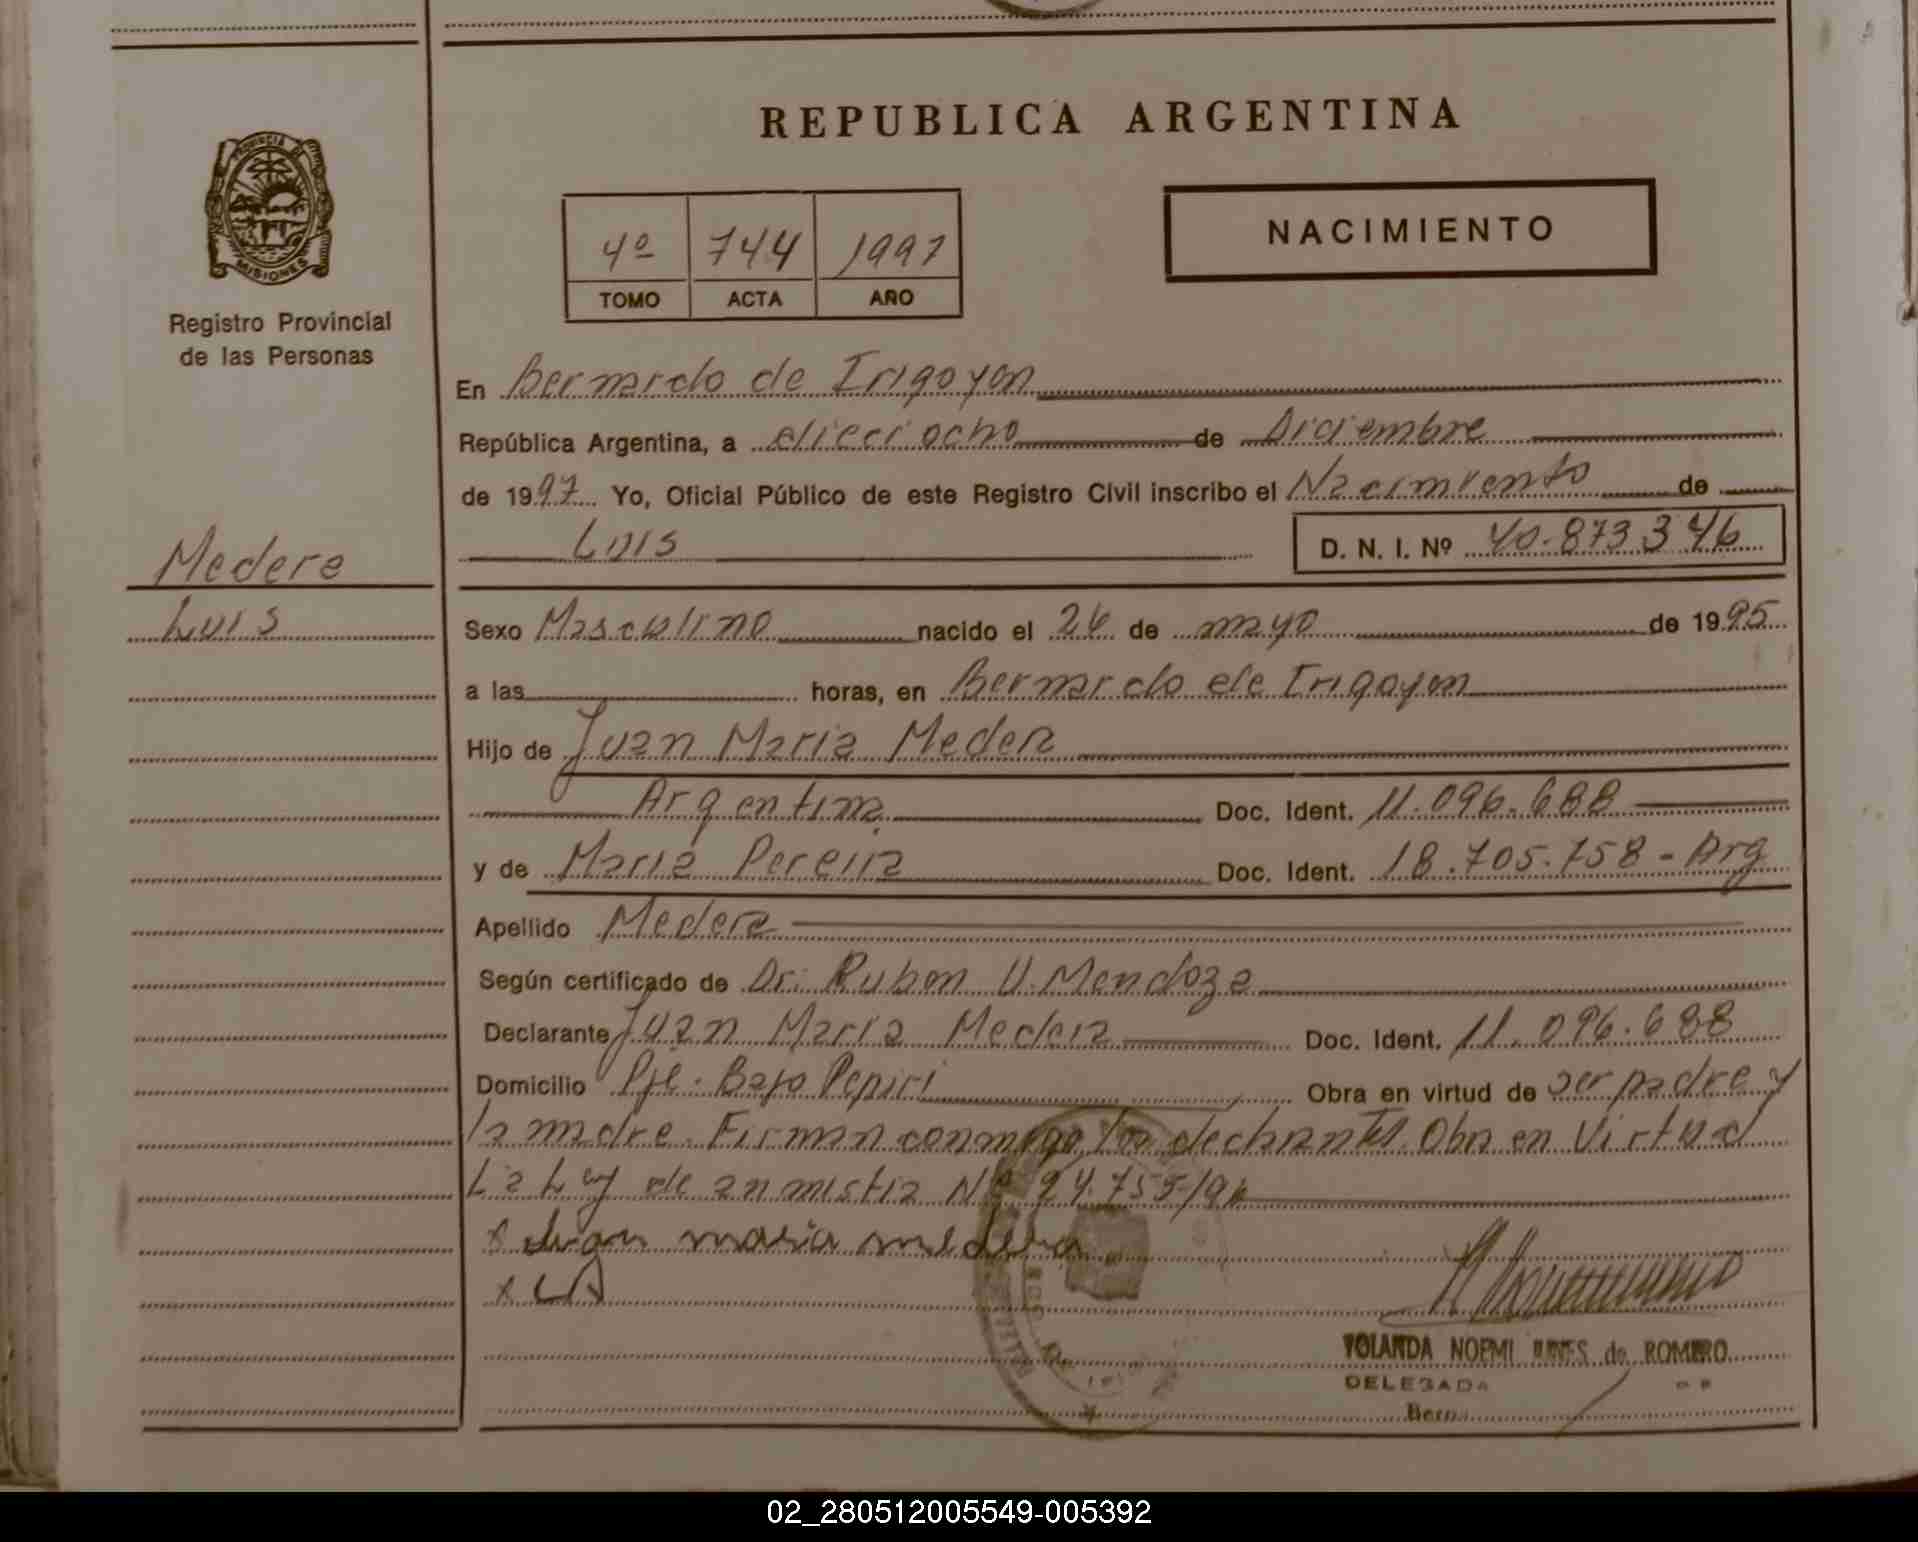 REPUBLICA ARGENTINA
PROVINCIA DE
MISIONES
Registro Provincial
de las Personas
4º 744 1997
TOMO ACTA AÑO
NACIMIENTO
En Bernardo de Irigoyen
República Argentina, a dieciocho de Diciembre
de 1997 Yo, Oficial Público de este Registro Civil inscribo el Nacimiento de
Luis D. N. I. Nº 40.873.346
Medera
Luis
Sexo Masculino nacido el 26 de mayo de 1995
a las horas, en Bernardo de Irigoyen
Hijo de Juan Maria Medera
Argentina Doc. Ident. 11.096.688
y de Maria Pereira Doc. Ident. 18.705.758 - Arg
Apellido Medera
Según certificado de Dr. Ruben U. Mendoza
Declarante Juan Maria Medera Doc. Ident. 11.096.688
Domicilio Pje. Bajo Pepiri Obra en virtud de ser padre y
la madre. Firman conmigo los declarantes. Obra en Virtud
La Ley de anmistia Nº 24.755/96
x Juan maria medera
x
YOLANDA NOEMI de ROMERO
DELEGADA
Bern.
02_280512005549-005392